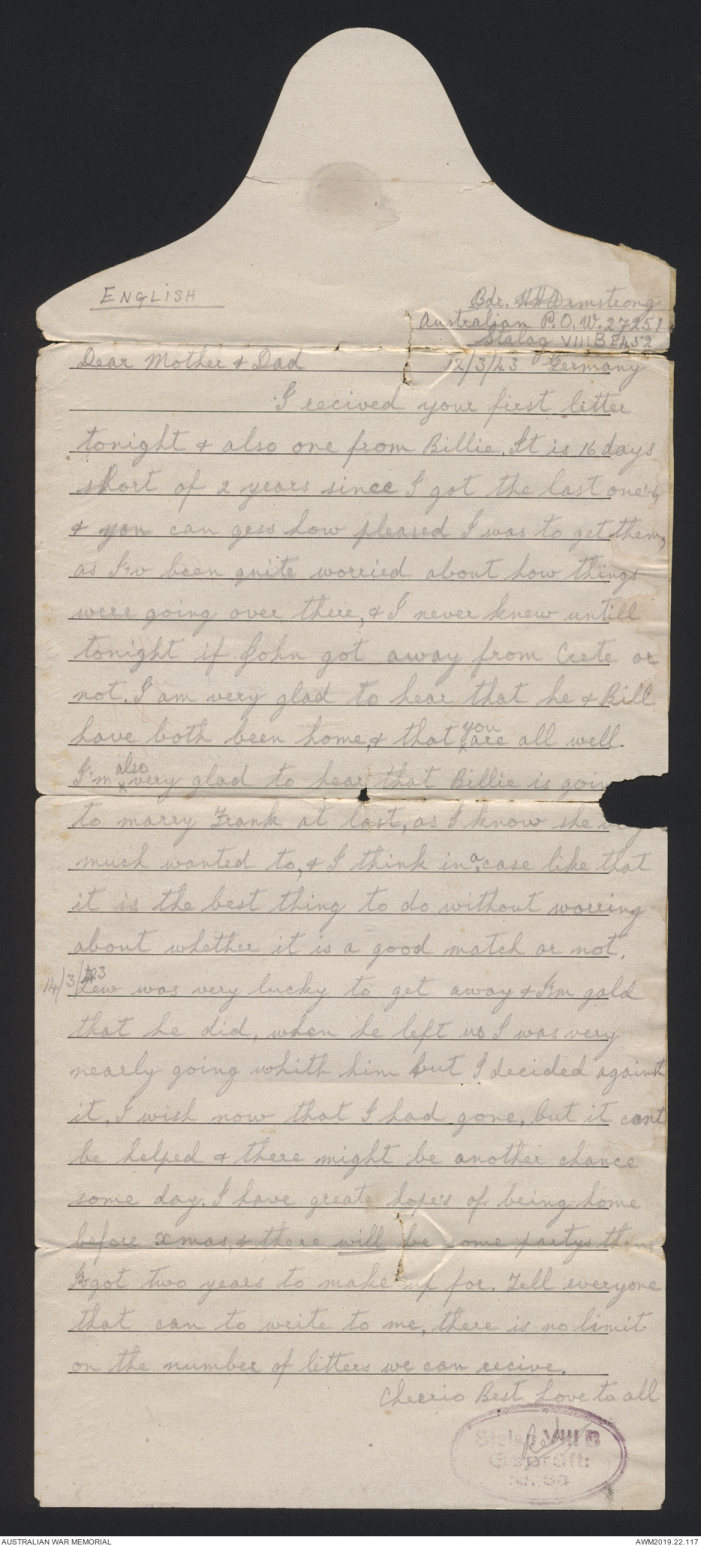 ENGLISH
Bdr. Armstrong
Australian P.O.W. 27251
Stalag VIIIB E452
Dear Mother & Dad 12/3/43 Germany
I recived your first letter
tonight & also one from Billie. It is 16 days
short of 2 years since I got the last one's,
& you can gess how pleased I was to get them,
as I'v been quite worried about how things
were going over there, & I never knew untill
tonight if John got away from Crete or
not. I am very glad to hear that he & Bill
have both been home, & that you are all well.
I'm also very glad to hear that Billie is goin
to marry Frank at last, as I know she
much wanted to, & I think in a case like that
it is the best thing to do without worring
about whether it is a good match or not.
14/3/43 Lew was very lucky to get away & I'm gald
that he did, when he left us I was very
nearly going whith him but I decided against
it. I wish now that I had gone, but it cant
be helped & there might be another chance
some day. I have great hope's of being home
before xmas, & there will be some partys the
got two years to make up for. Tell everyone
that can to write to me, there is no limit
on the number of letters we can recive.
Cheerio Best Love to all
Stalag VIII B
Geprüft:
Nr. 
AUSTRALIAN WAR MEMORIAL AWM2019.22.117